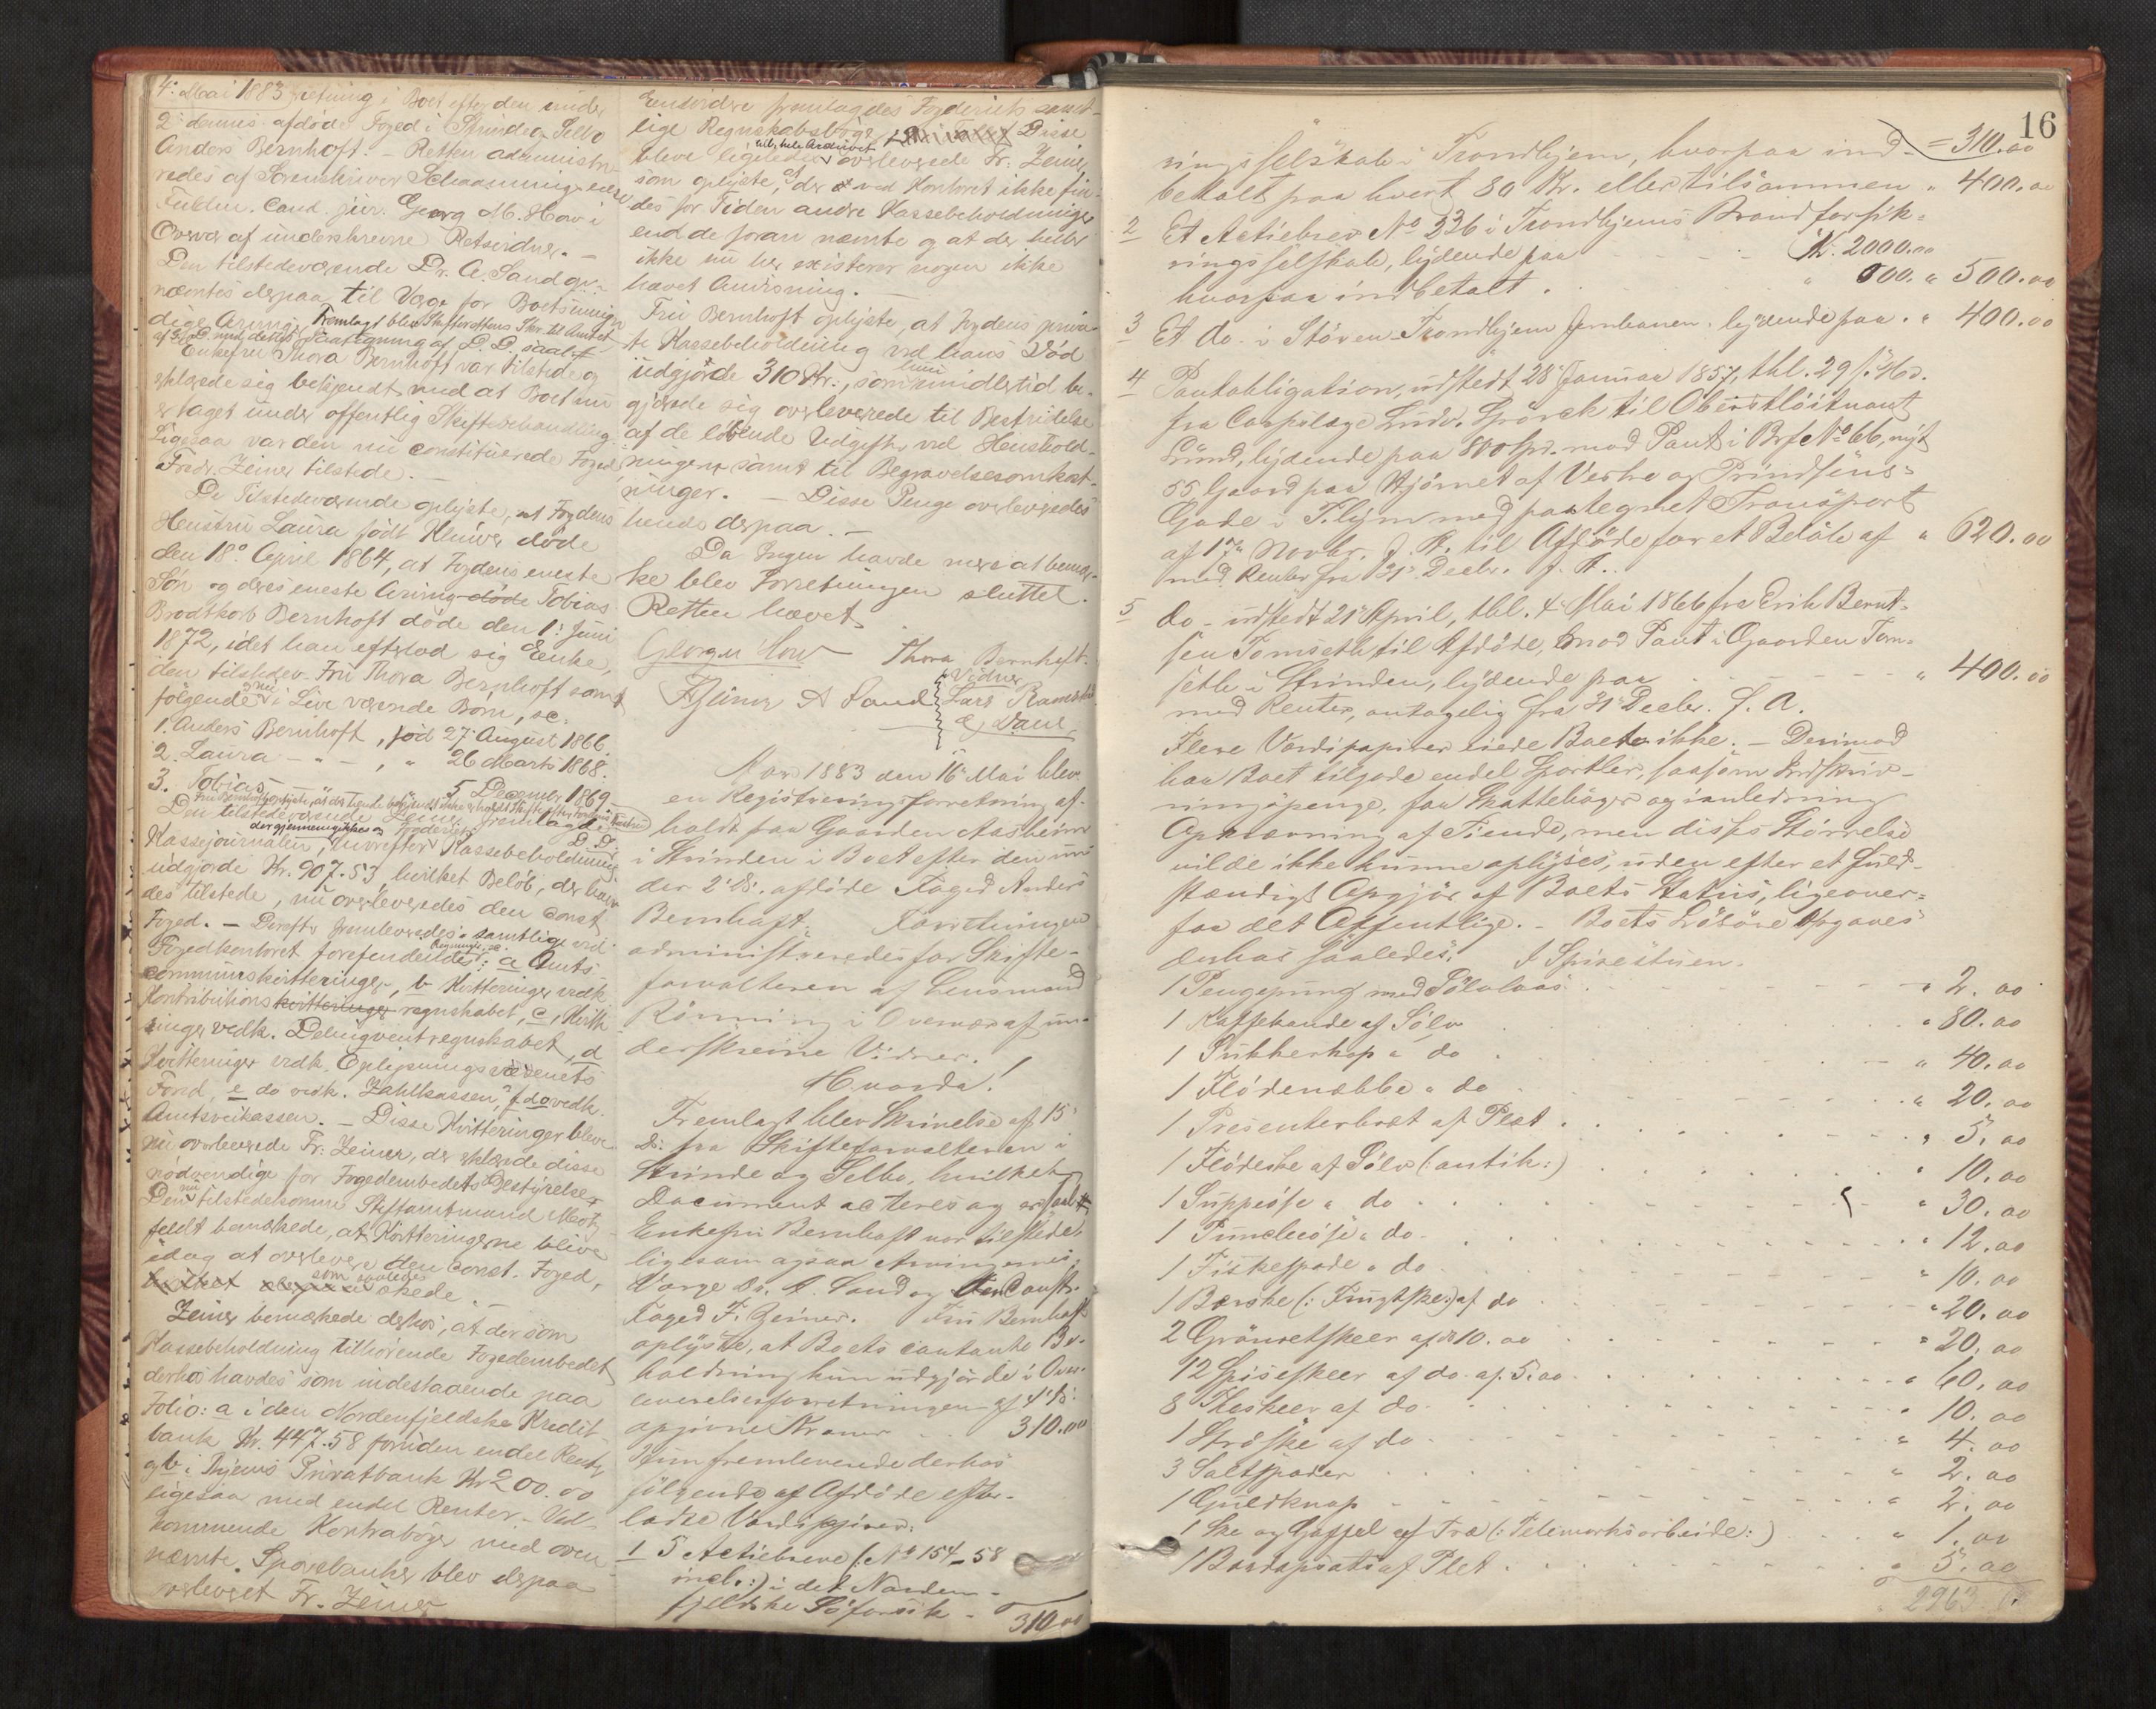 4: Mai 1883 retning i Boet efter den under
2 dennes afdöde Foged i Strinde og Selbo
Anders Bernhoft. – Retten administre-
redes af Sorenskriver Schaanning ved
Fuldm. Cand. jur. Georg M. How i
Overvær af underskrevne Retsvidner. –
Den tilstedeværende Dr. A. Sand op-
nævntes derpaa til Værge for Boets umyn-
dige Arvinger. Fremlagt blev Skifterettens Skr. til Amtet
af 3 d. D. med dettes Paategning af D. D. saal.
Enkefru Thora Bernhoft var tilstede og
erklærede sig bekjendt med at Boet nu
er taget under offentlig Skiftebehandling.
Ligesaa var den nu constituerede Foged,
Fredr. Zeiner tilstede. –
De Tilstedeværende oplyste, at Fogdens
Hustru Laura födt Klüwer döde
den 18de April 1864, at Fogdens eneste
Sön og deres eneste Arving döde Tobias
Brodtkorb Bernhoft döde den 1: Juni
1872, idet han efterlod sig Enke,
den tilstedev. Fru Thora Bernhoft samt
følgende nu i Live værende Born, sc.
1. Anders Bernhoft, föd 27 August 1866.
2. Laura – " – , " 26 Marts 1868.
3. Tobias – 5 December 1869.
Fru Bernhoft oplyste, at der
Den tilstedeværende Zeiner fremlagde
dergjennemgikkes og Fogderiets D. D.
Kassejournalen, hvorefter Kassebeholdning
udgjorde Kr. 907.53 hvilket Belöb, der hav-
des tilstede, nu overleveredes den const.
Foged. – Derefter fremleveredes samtlige ved
Fogedkontoret forefindendes: a Amts
communekvitteringer, b Kvitteringer vedk.
Kontributions kvitteringer regnskabet, c, Kvit-
ringer vedk. Delinqventregnskabet, d
Kvitteringer vedk. Oplysningsvæsenets
Fond, e do vedk. Zahlkassen, f do vedk.
Amtsveikassen. – Disse Kvitteringer bleve
nu overleverede Fr. Zeiner, der erklærede disse
nödvendige for Fogedembedets Bestyrelse.
Den nu tilstedekomne Stiftamtmand Motz-
feldt bemærkede, at Kvitteringerne blive
idag at overlevere den const. Foged,
hvilket som saaledes skede. –
Zeiner bemærkede derhos, at der som
Kassebeholdning tilhörende Fogedembedet
derhos havdes som indestaaende paa
Folio: a i den Nordenfjeldske Kredit-
bank Kr. 447.58 foruden endel Renter
og b i Thjems Privatbank Kr 200.00
ligesaa med endel Renter. – Ved-
kommende Kontraböger med oven-
nævnte Sparebanker blev derpaa
overleveret Fr. Zeiner
Endvidere fremlagdes Fogderiets samt-
lige Regnskabsböger Disse
bleve ligeledes tillige hele Archivet overleverede Fr. Zeiner
som oplyste, at der ved Kontoret ikke fin-
des for Tiden andre Kassebeholdninger
end de foran nævnte og at der heller
ikke nu her existerer nogen ikke
hævet Anvisning. –
Fru Bernhoft oplyste, at Fogdens priva-
te Kassebeholdning ved hans Död
udgjörde 310 Kr., som hun imidlertid be-
gjærede sig overleverede til Bestridelse
af de löbende Udgifter ved Hushold-
ningen samt til Begravelsesomkost-
ninger. – Disse Penge overleveredes
hende derpaa. –
Da Ingen havde mere at bemær-
ke blev Forretningen sluttet.
Retten hævet
Georg M How Thora Bernhoft.
FZeiner A Sand Vidner Lars
Aar 1883 den 16 Mai blev
en Registreringsforretning af-
holdt paa Gaarden Aasheim
i Strinden i Boet efter den un-
der 2' ds. afdöde Foged Anders
Bernhoft. Forretningen
administreredes for Skifte-
forvalteren af Lensmand
Rönning i Overvær af un-
derskrevne Vidner.
Hvorda!
Fremlagt blev Skrivelse af 15
ds. fra Skifteforvalteren i
Strinde og Selbo, hvilket
Document acteres og er saal.
Enkefru Bernhoft var tilstede,
ligesom ogsaa Arvingernes
Værge Dr. A. Sand og den Const.
Foged F. Zeiner. Fru Bernhoft
oplyste, at Boets contante Be-
holdning kun udgjörde i Over-
leverelsesforretningen af 4' ds.
opgivne Kroner . . 310.00
Hun fremleverede derhos
fölgende af Afdöde efter-
ladte Værdipapirer:
1 5 Actiebreve (: No 154–58
incl. :) i det Norden-
fjeldske Söforsik- 310.00
16
= 310.00
ringsselskab i Trondhjem, hvorpaa ind-
betalt paa hvert 80 Kr. eller tilsammen " 400.00
2 Et Actiebrev No 336 i Trondhjems Brandforsik-
ringsselskab, lydende paa - - - Kr. 2000.00
hvorpaa indbetalt . " 500. " 500.00
3 Et do. i Stören-Trondhjem Jernbanen, lydende paa . " 400.00
4 Pantobligation, udstedt 28 Januar 1857, thl. 29 s. Md.
fra Ludv. Spörck til Oberstlöitnant
Lund, lydende paa 800 Spd. mod Pant i Brf No 66, nyt
55, Gaard paa Hjörnet af Vestre og Prindsens-
Gade i T.hjem med paategnet Transport
af 17 Novbr. f. A. til Afdöde for et Belöb af " 620.00
med Renter fra 31 Decbr. f. A. .
5 do - udstedt 21 April, thl. 4 Mai 1866 fra Erik Bernt-
sen Tomseth til Afdöde, mod Pant i Gaarden Tom-
seth i Strinden, lydende paa - - - - " 400.00
med Renter, antagelig fra 31 Decbr. f. A.
Flere Værdipapirer eiede Boet ikke. – Derimod
har Boet tilgode endel Sportler, saasom Indskriv-
ningspenge, for Skatteböger og i anledning
Opkrævning af Tiende, men disses Störrelse
vilde ikke kunne oplyses, uden efter et fuld-
stændigt Opgjör af Boets Status, ligeover-
for det Offentlige. – Boets Lösöre opgaves
derhos saaledes: I Spisestuen.
1 Pengepung med Sölvlaas . - - - - " 2. 00
1 Kaffekande af Sölv . . . . " 80.00
1 Sukkerkop " do . . . - - " 40.00
1 Flödenæbbe " do . - - - " 20.00
1 Presenterbret af Plet . . . . - - " 5. 00
1 Flödeske af Sölv (: antik :) . . . . " 10. 00
1 Suppeöse " do . . . . - " 30. 00
1 Puncheöse " do - . . - - - " 12. 00
1 Fiskespade " do - - - - " 10. 00
1 Bærske (: Frugtske :) af do . . . - - " 20. 00
2 Grönnetskeer af Kr 10. 00 . . . . - " 20. 00
12 Spiseskeer af do af 5. 00 . . . . " 60. 00
8 Theskeer af do - - - - " 10. 00
1 Ströske af do - - - - " 4. 00
3 Saltspader . . . . - " 2. 00
1 Guldknap - - - - " 2. 00
1 Ske og Gaffel af Træ (: Telemarksarbeide :) . . " 1. 00
1 Bordopsats af Plet . . . . " 5. 00
2963